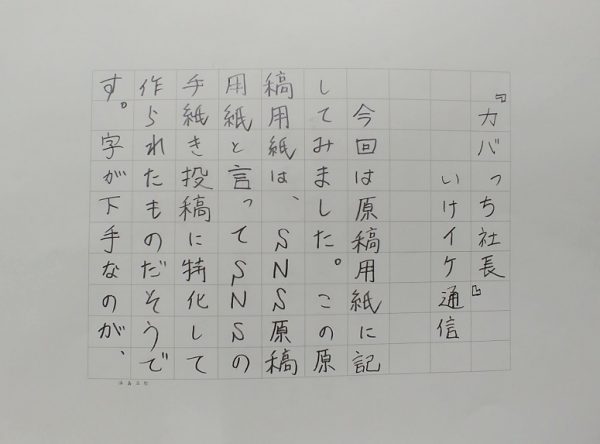 『カバっち社長』
いけイケ通信
今回は原稿用紙に記
してみました。この原
稿用紙は、SNS原稿
用紙と言ってSNSの
手紙き投稿に特化して
作られたものだそうで
す。字が下手なのが、